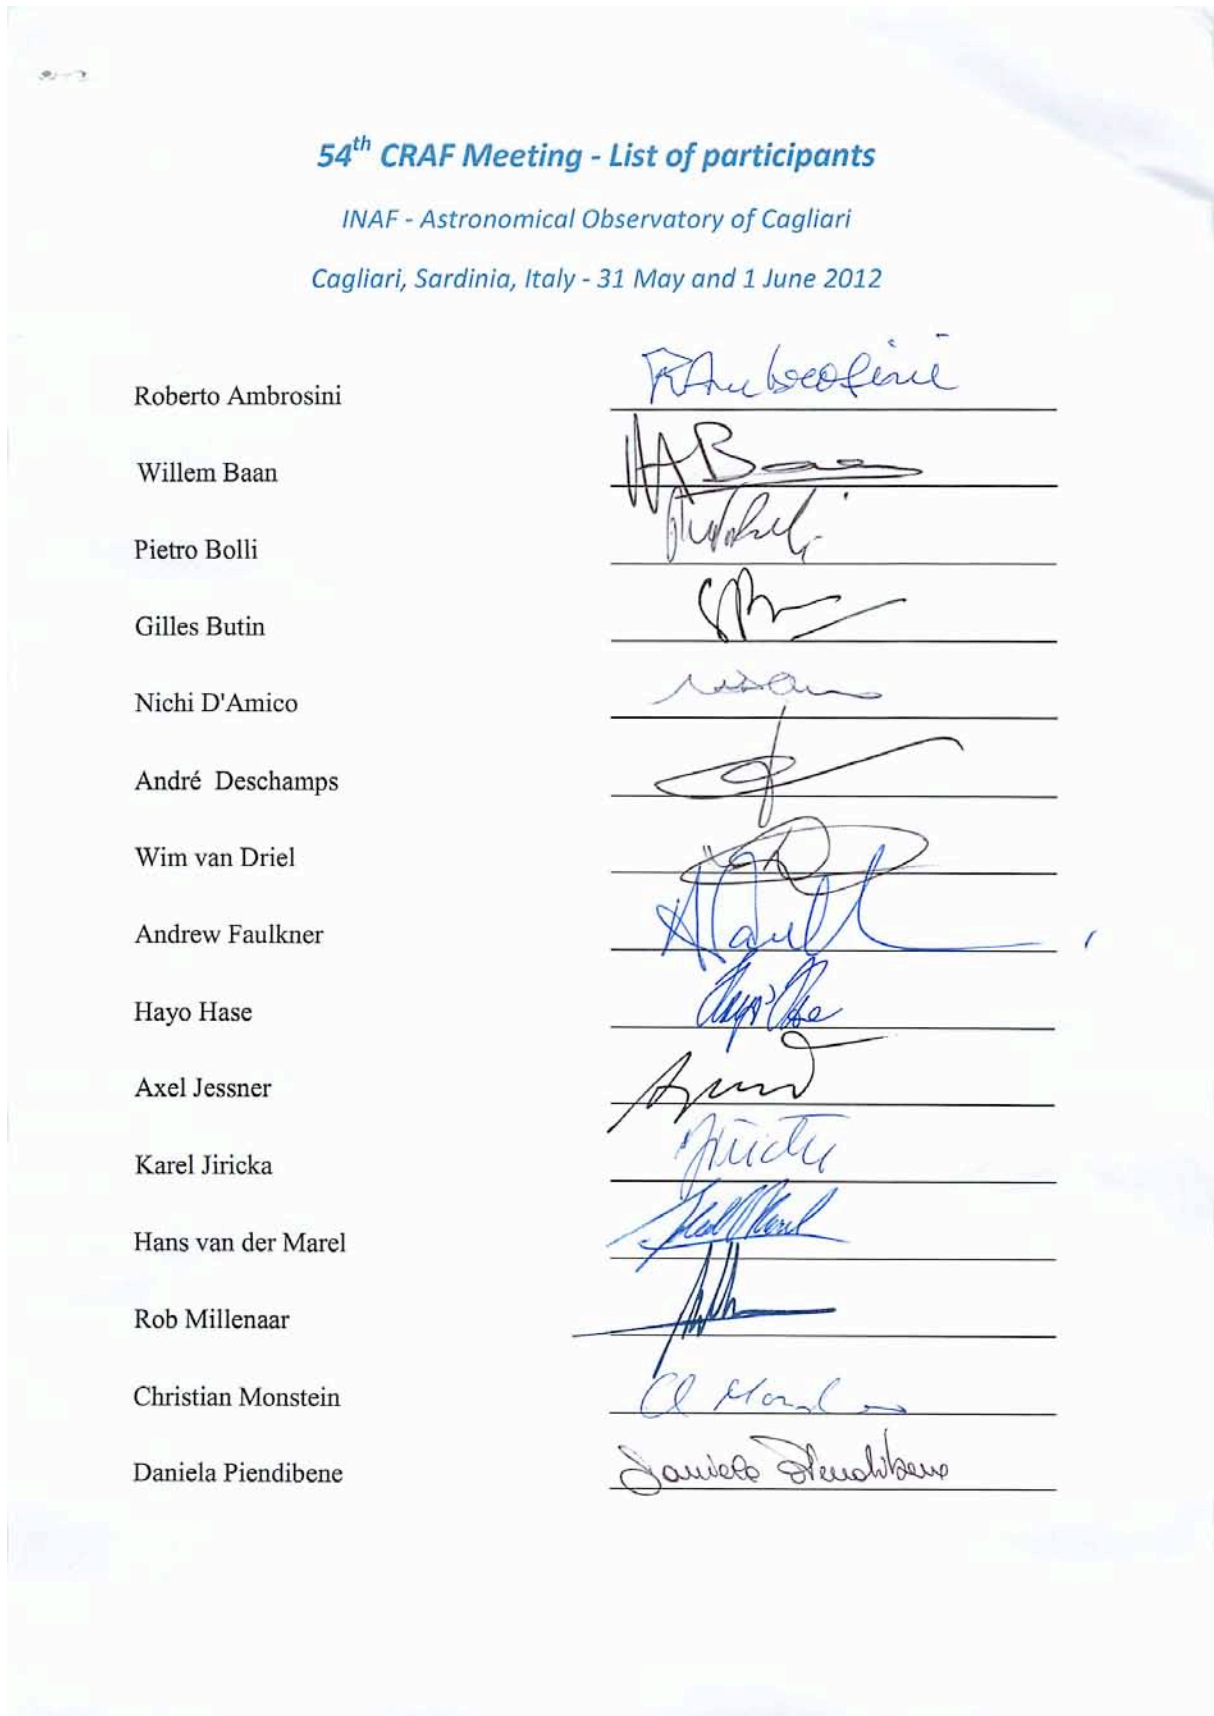 54th CRAF Meeting - List of participants
INAF - Astronomical Observatory of Cagliari
Cagliari, Sardinia, Italy - 31 May and 1 June 2012
Roberto Ambrosini RAmbrosini
Willem Baan WABaan
Pietro Bolli
Gilles Butin
Nichi D'Amico
André Deschamps
Wim van Driel
Andrew Faulkner
Hayo Hase Hayo Hase
Axel Jessner
Karel Jiricka
Hans van der Marel
Rob Millenaar
Christian Monstein
Daniela Piendibene Daniela Piendibene